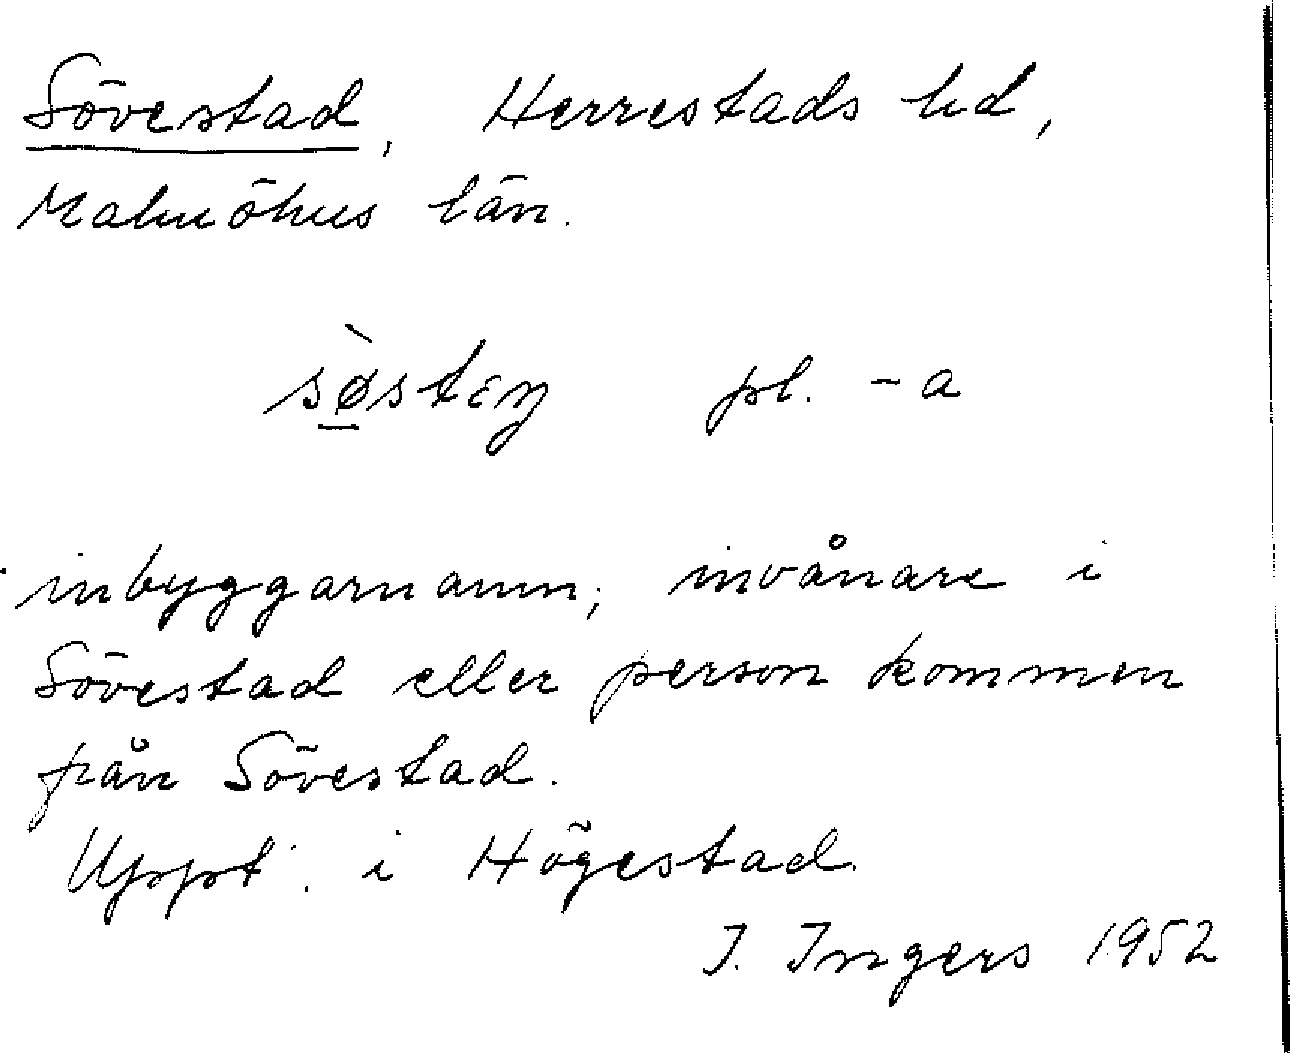 Sövestad, Herrestads hd,
Malmöhus län.
sø̀stεŋ pl. -a
inbyggarnamn; invånare i
Sövestad eller person kommen
från Sövestad.
Uppt. i Högestad.
I. Ingers 1952